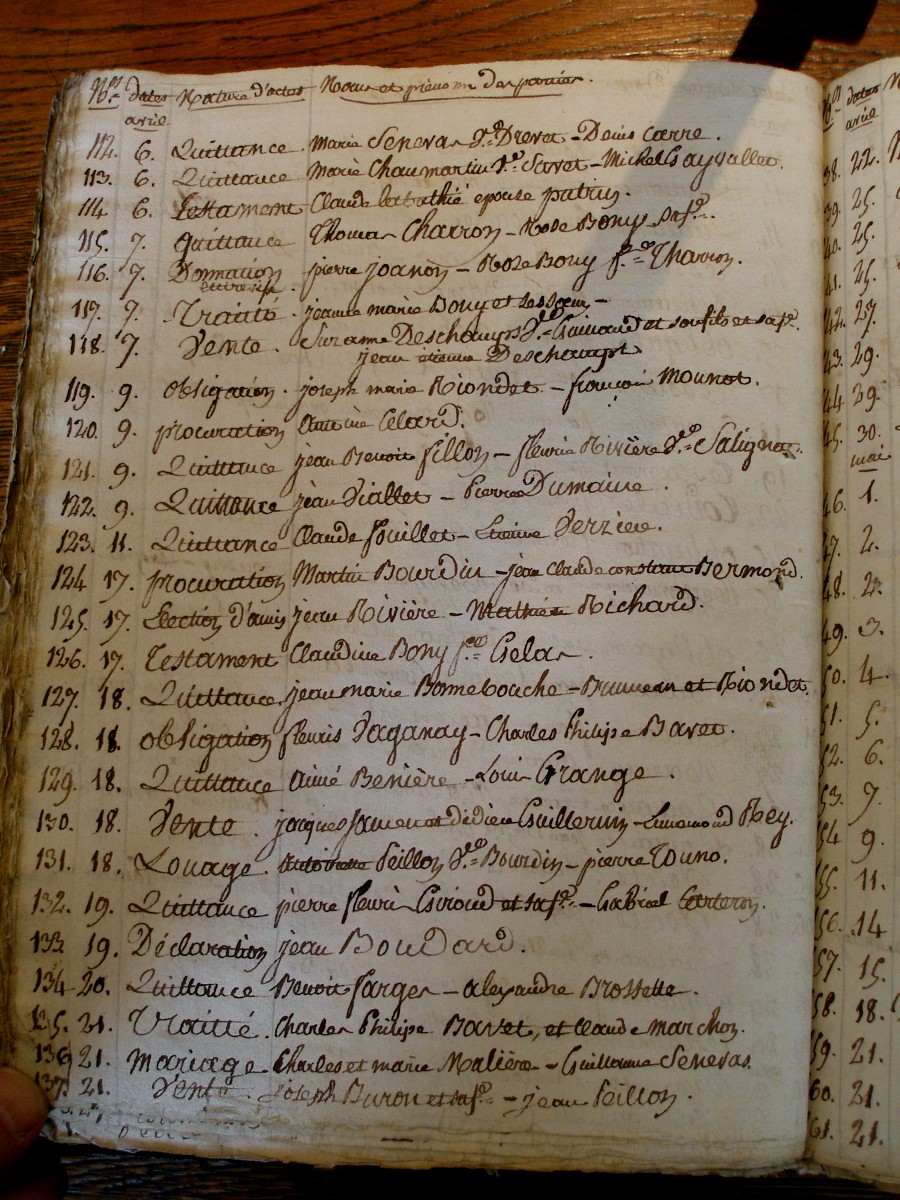 Nos dates Nature d'actes Noms et prénoms des parties.
avril
112. 6. Quittance. marie Senevas Ve Drevet - Denis Carre.
113. 6. Quittance marie Chaumartin Ve Savet - Michel
114 6. Testament Claude épouse patrin.
115. 7. quittance Thomas Charron - Rose Bony sa fe.
116. 7. Donnation pierre joanon - Roze Bony fe Charron.
117. 7. Traité. jeanne marie Bony et ses soeurs -
118. 7. Vente. Suzanne Deschamps Ve Guinand et son fils et sa fe.
jean étienne Deschamps
119. 9. obligation. joseph marie Riondet - françois Mounot.
120. 9. procuration antoine Celard.
121. 9. Quittance jean Benoit fillon - fleurie Rivière Ve Salignat.
122. 9. Quittance jean Viallet - Pierre Dumaine.
123. 11. Quittance Claude fouillet - Etienne Verzieu.
124 17. procuration Martin Bourdin - jean Claude constant Bermond.
125. 17. Election d'amis jean Rivière - Mathieu Richard.
126. 17. Testament Claudine Bony fe Gelas.
127. 18. Quittance. jean marie Bonnebouche - Bruneau et Riondet.
128. 18. obligation fleuris Vaganay - Charles Philipe Bavet.
129. 18. Quittance aimé Benière - Louis Grange.
130. 18. Vente. jacques et didier Guillermin - Rey.
131. 18. Louage. Antoinette Peillon Ve Bourdin - pierre Touno.
132. 19. Quittance pierre fleuri Giroud et sa fe. - Gabriel Carteron.
133. 19. Déclaration jean Boudard.
134 20. Quittance Benoit farges - alexandre Brossette.
135. 21. Traitté. Charles Philipe Bavet, et Claude marchon.
136 21. Mariage. Charles et marie Malière - Guillaume Senevas.
137. 21. Vente. joseph Buron et sa fe - jean Peillon.
Nos dates
avril
38. 22.
39. 25.
40. 25.
41. 25.
42. 27.
43. 29.
44 29.
45. 30.
mai
46. 1.
47. 2.
48. 2.
49. 3.
50. 4.
51. 5.
52. 6.
53. 7.
54 9.
55. 11.
56. 14
57. 15.
58. 18.
59. 21.
60. 21.
61. 21.